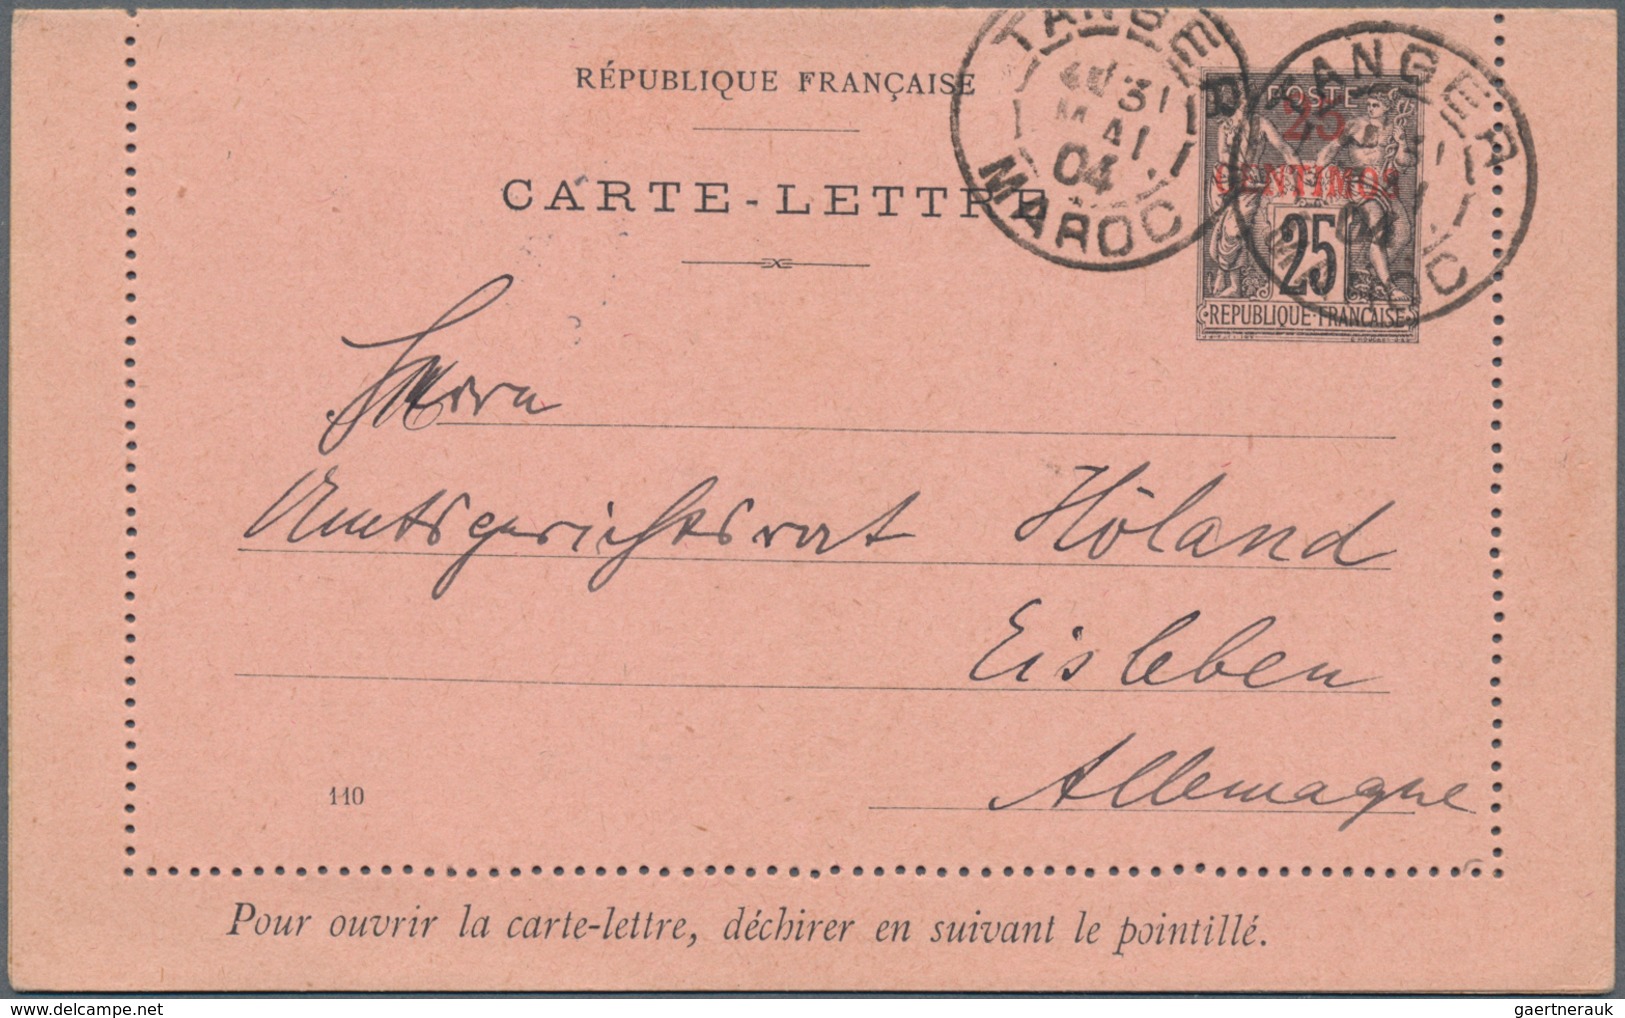 RÉPUBLIQUE FRANÇAISE
CARTE-LETTRE
TANGER
31
MAI
04
MAROC
TANGER
31
04
POSTE
25
CENTIMOS
25
REPUBLIQUE·FRANÇAISE
Herrn
Amtsgerichtsrat Höland
Eisleben
Allemagne
110
Pour ouvrir la carte-lettre, déchirer en suivant le pointillé.
gaertnerauk @ delcampe.net